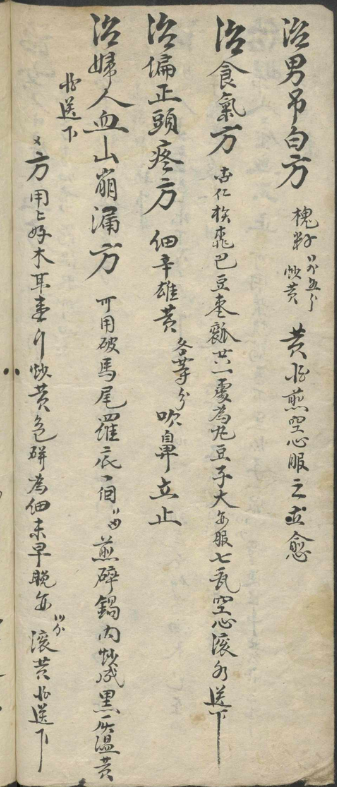 治男吊白方 槐籽 炒黄 黄酒煎空心服之立愈
治食氣方 杏仁 核桃 巴豆 枣瓤 共一處為丸豆子大每服七瓦空心滚水送下
治偏正頭疼方 細辛雄黄各等分吹鼻立止
治婦人血山崩漏方 可用破馬尾羅底一個 煎碎鍋内炒成黑灰温黄
酒送下
又方 用上好木耳壹斤炒黄色研為細末早晚每 滚黄酒送下